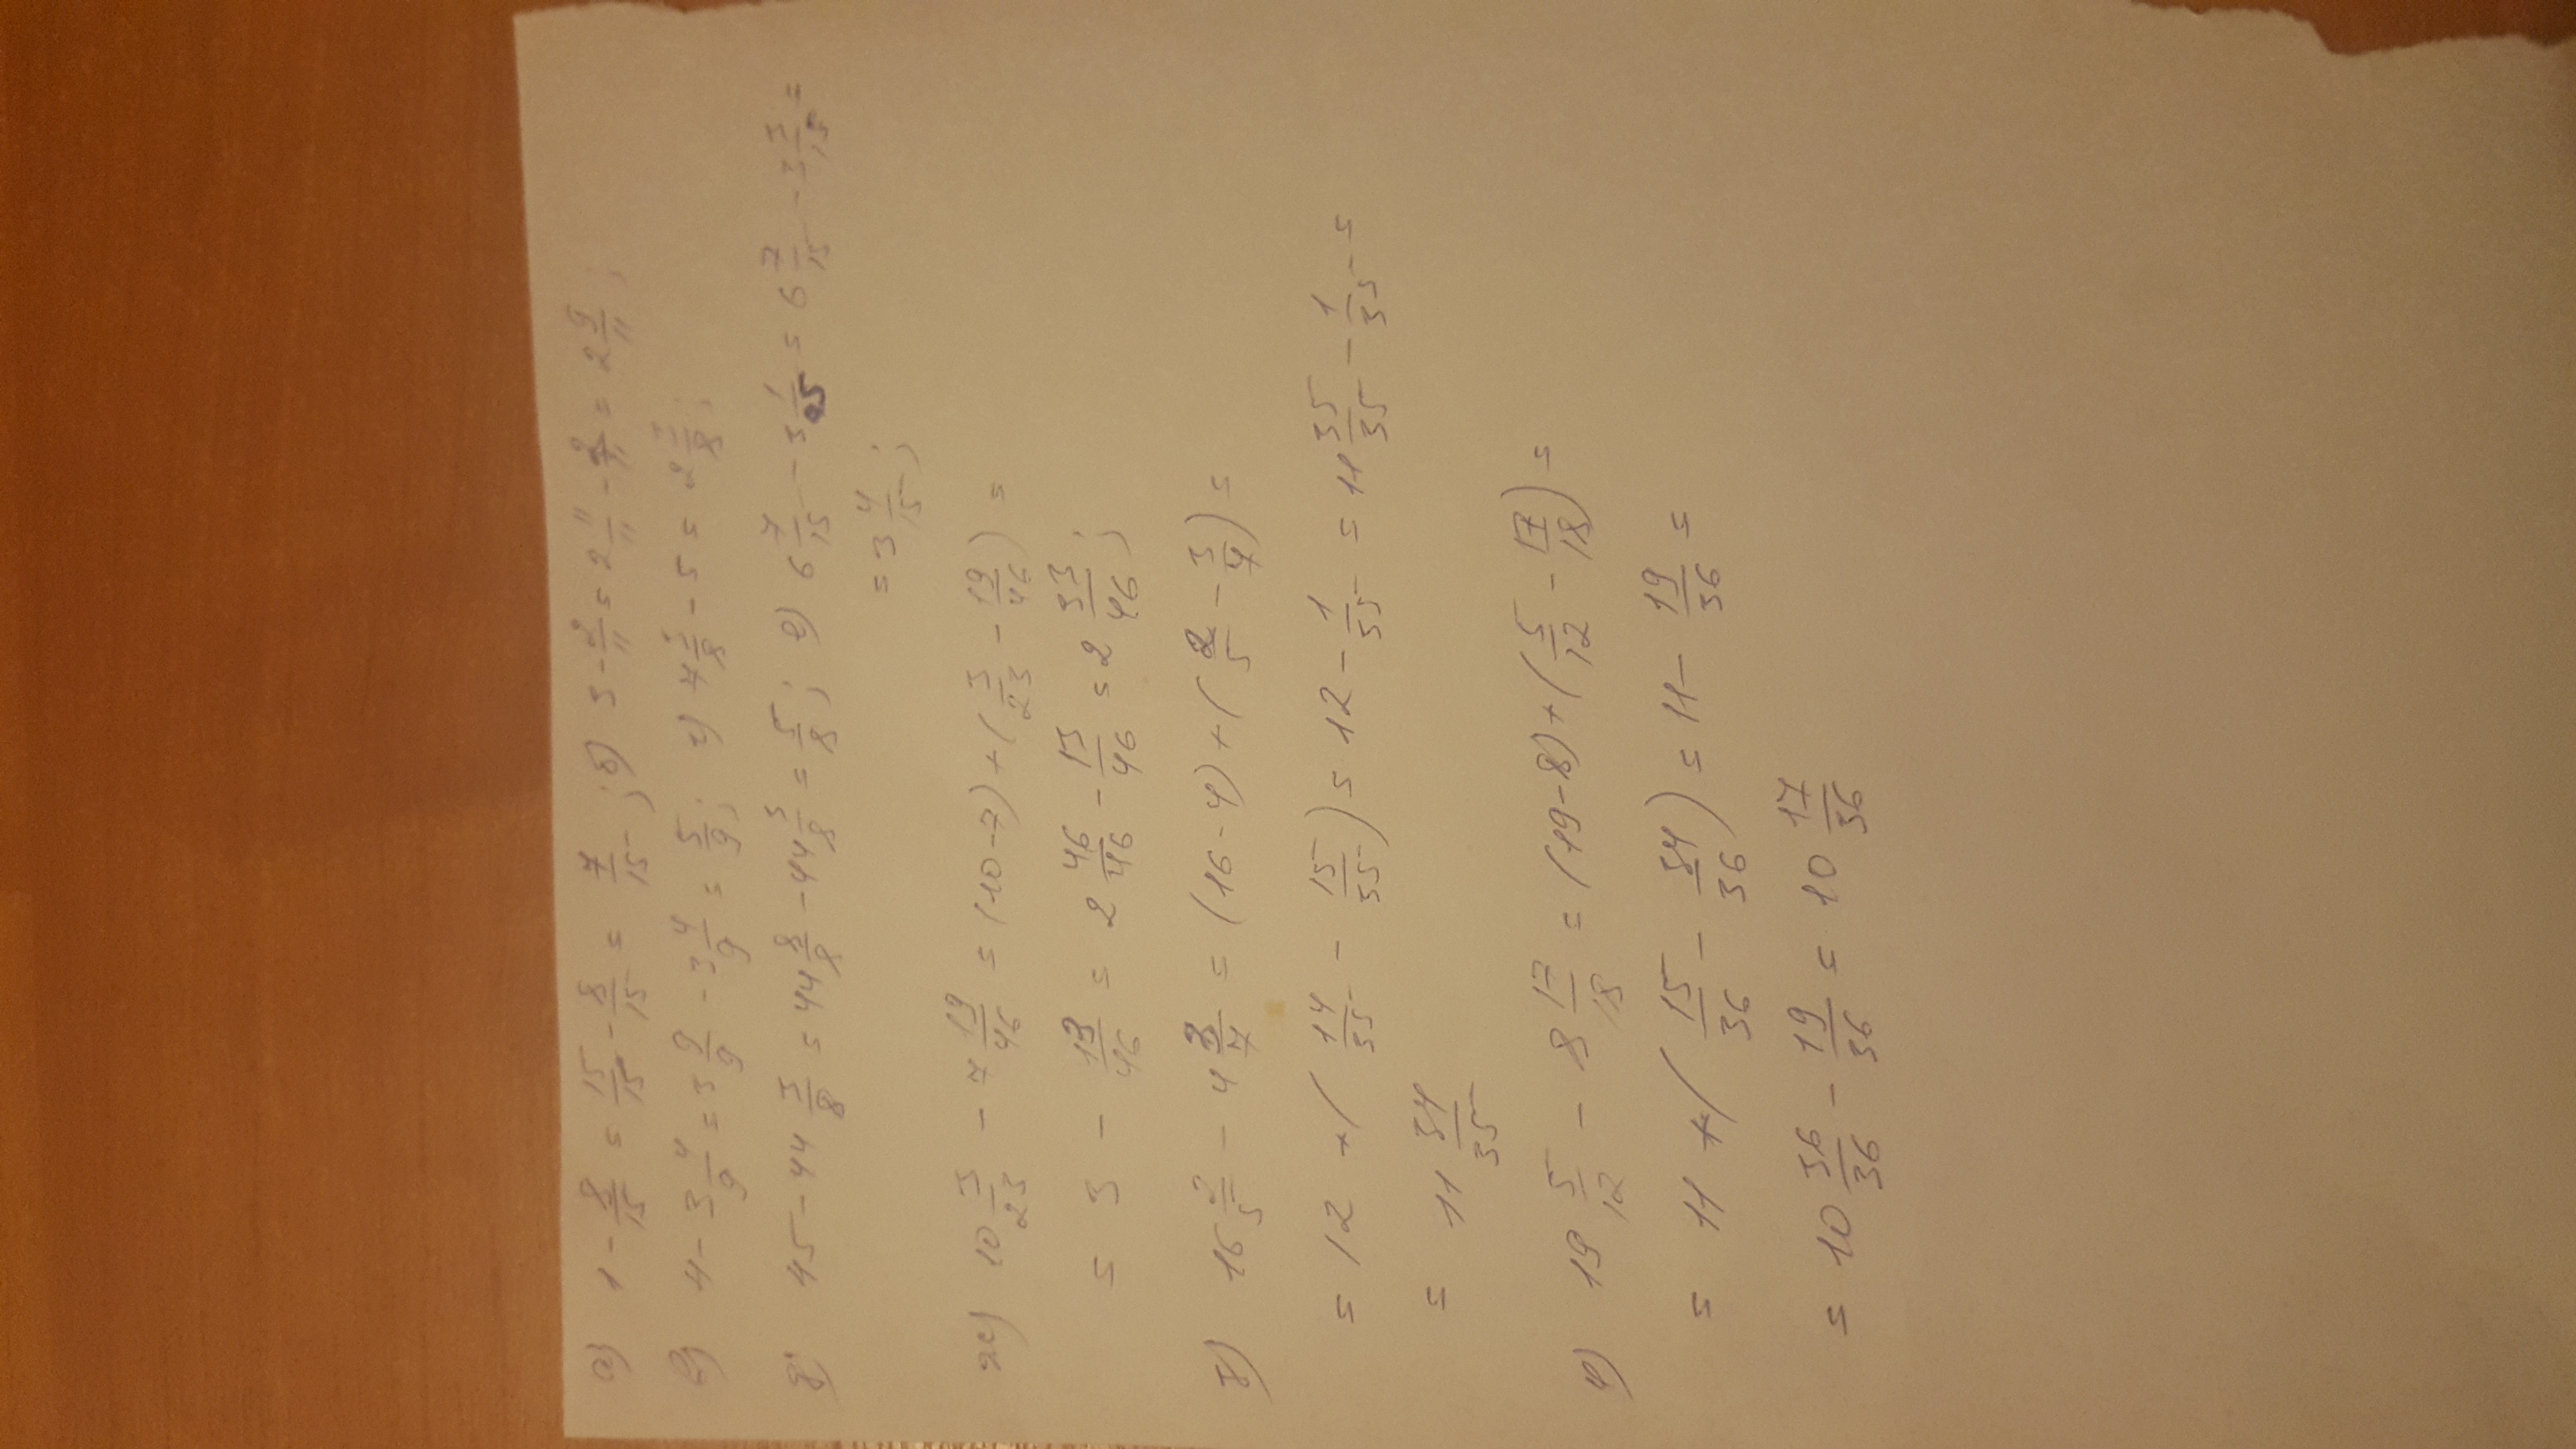 а) 1 - 8/15 = 15/15 - 8/15 = 7/15; б) 3 - 2/11 = 2 11/11 - 2/11 = 2 9/11;
в) 4 - 3 4/9 = 3 9/9 - 3 4/9 = 5/9; г) 7 3/8 - 5 = 2 3/8;
д) 45 - 44 3/8 = 44 8/8 - 44 3/8 = 5/8; е) 6 7/15 - 3 1/5 = 6 7/15 - 3 3/15 =
= 3 4/15;
ж) 10 3/23 - 7 19/46 = (10-7) + (3/23 - 19/46) =
= 3 - 13/46 = 2 46/46 - 13/46 = 2 33/46;
з) 16 2/5 - 4 3/7 = (16-4) + (2/5 - 3/7) =
= 12 + (14/35 - 15/35) = 12 - 1/35 = 11 35/35 - 1/35 =
= 11 34/35
и) 19 5/12 - 8 17/18 = (19-8) + (5/12 - 17/18) =
= 11 + (15/36 - 34/36) = 11 - 19/36 =
= 10 36/36 - 19/36 = 10 17/36